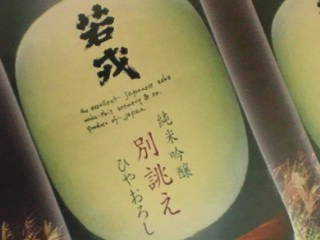 若戎
an excellent Japanese sake
make this brewery & co.
product of Japan
純米吟醸
別誂え
ひやおろし